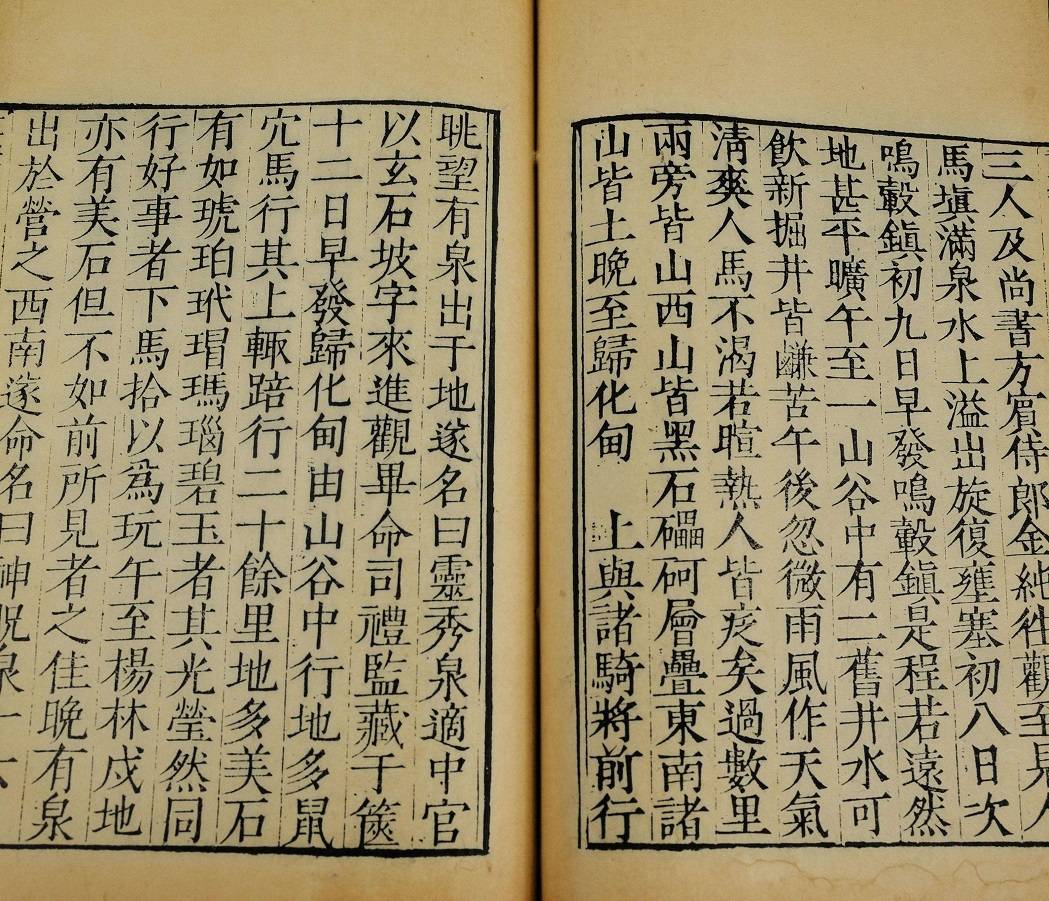 三人及尚書方賓侍郎金純往觀至見人
馬填滿泉水上溢出旋復壅塞初八日次
鳴轂鎮初九日早發鳴轂鎮是程若遠然
地甚平曠午至一山谷中有二舊井水可
飲新掘井皆鹻苦午後忽微雨風作天氣
清爽人馬不渴若暄熱人皆疲矣過數里
兩旁皆山西山皆黑石礧砢層疊東南諸
山皆土晚至歸化甸 上與諸騎將前行
眺望有泉出于地遂名曰靈秀泉適中官
以玄石坡字來進觀畢命司禮監藏于篋
十二日早發歸化甸由山谷中行地多鼠
穴馬行其上輙踣行二十餘里地多美石
有如琥珀玳瑁瑪瑙碧玉者其光瑩然同
行好事者下馬拾以爲玩午至楊林戍地
亦有美石但不如前所見者之佳晚有泉
出於營之西南遂命名曰神貺泉十六